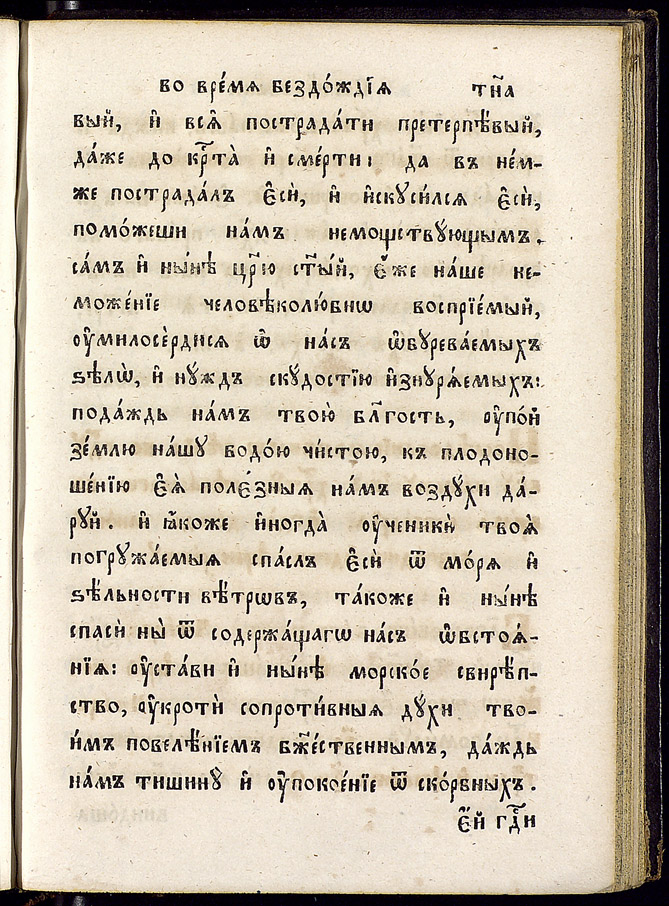 во вре́мѧ бездо́ждїѧ тн҃а
вый, и҆ всѧ҄ пострада́ти претерпѣ́вый,
да́же до крⷭ҇та̀ и҆ сме́рти: да в̾ не́м-
же пострада́лъ є҆сѝ, и҆ и҆скꙋси́лсѧ є҆сѝ,
помо́жеши на́мъ немощствꙋющымъ.
са́мъ и҆ ны́нѣ цр҃ю ст҃ы́й, є҆́же на́ше не-
може́нїе человѣколю́бнѡ воспрїе́мый,
ᲂу҆милосе́рдисѧ ѡ҆ на́съ ѡ҆бꙋрева́емыхъ
ѕѣлѡ̀, и҆ нꙋждъ скꙋдостїю и҆знꙋрѧ́емыхъ:
пода́ждь на́мъ твою̀ бл҃гость, ᲂу҆по́й
зе́млю на́шꙋ водо́ю чи́стою, къ плодоно-
ше́нїю є҆ѧ̀ поле́зныѧ на́мъ возд́ꙋхи да́-
рꙋй. и҆ ꙗ҆́коже и҆ногда̀ ᲂу҆ченикѝ твоѧ҄
погрꙋжа́емыѧ спа́слъ є҆сѝ ѿ мо́рѧ и҆
ѕѣ́льности вѣ́трѡвъ, та́коже и҆ ны́нѣ
спасѝ ны̀ ѿ содержа́щагѡ на́съ ѡ҆бстоѧ́-
нїѧ: ᲂу҆ста́ви и҆ ны́нѣ морско́е свирѣ́п-
ство, ᲂу҆кротѝ сопроти́вныѧ дꙋ́хи тво-
и́мъ повелѣ́нїемъ бж҃е́ственнымъ, да́ждь
на́мъ тишинꙋ̀ и҆ ᲂу҆покое́нїе ѿ ско́рбныхъ.
є҆́й гдⷭ҇и